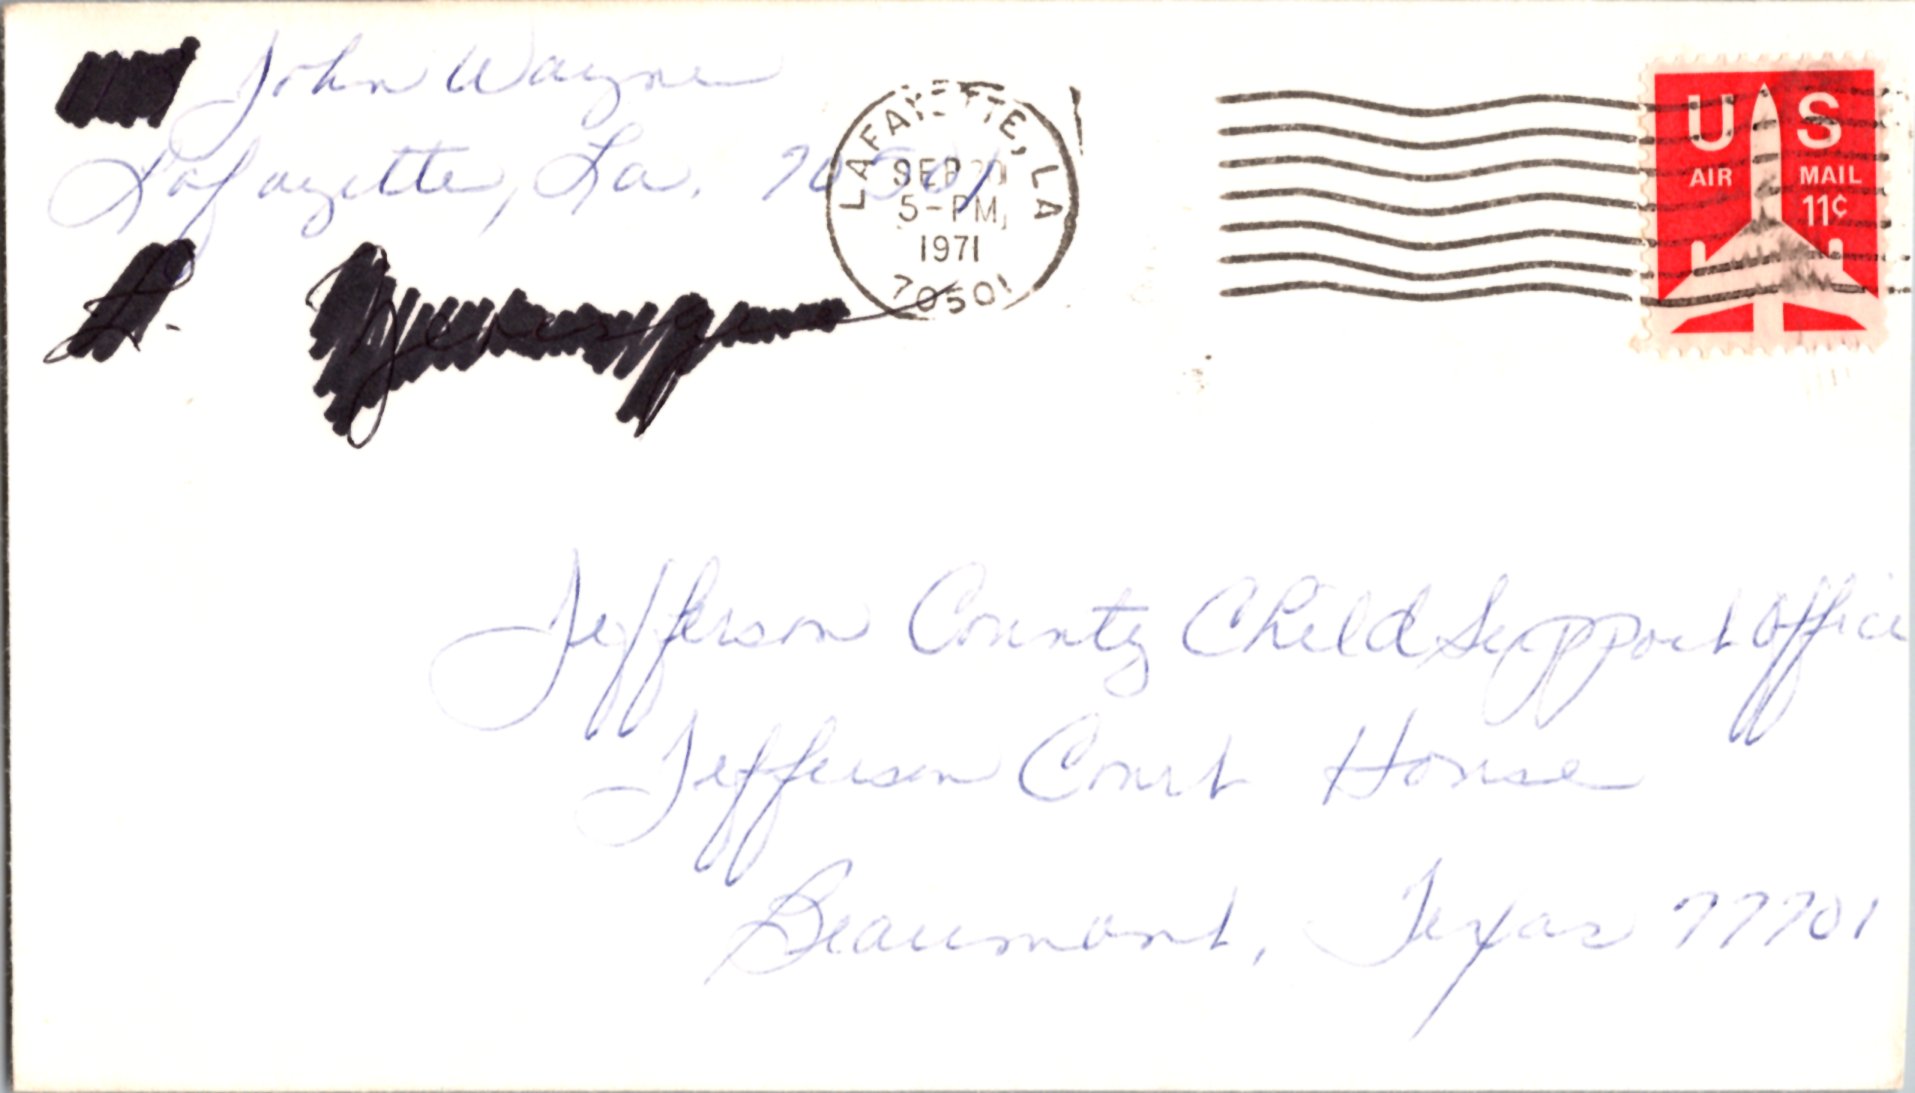 John Wayne
Lafayette, La. 70501
LAFAYETTE, LA
SEP
5-PM
1971
70501
US
AIR MAIL
11¢
Jefferson County Child Support Office
Jefferson Court House
Beaumont, Texas 77701